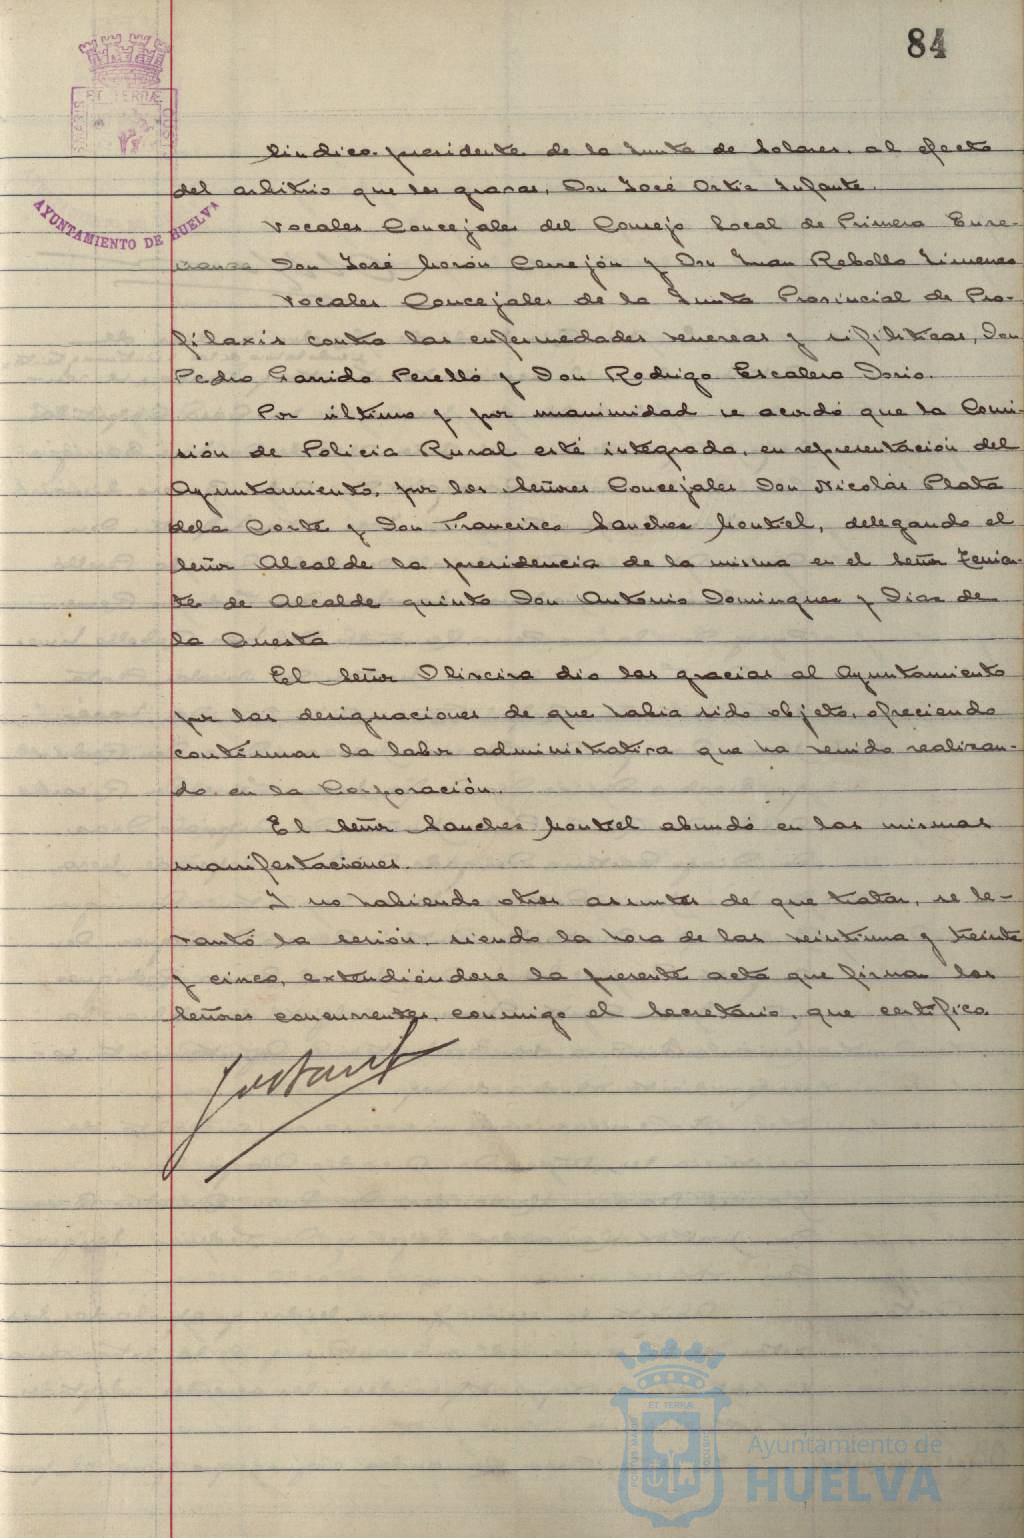 84
ET TERRÆ
AYUNTAMIENTO DE HUELVA
Síndico-presidente de la Junta de Solares, al efecto
del arbitrio que los gravas, Don José Ortiz Infante.
Vocales Concejales del Consejo Local de Primera Ense-
ñanza Don José Morón Cerrejón y Don Juan Rebollo Jimenez
Vocales Concejales de la Junta Provincial de Pro-
filaxis contra las enfermedades venereas y sifiliticas, Don
Pedro Garrido Perelló y Don Rodrigo Escalera Dorio.
Por último y por unanimidad se acordó que la Comi-
sión de Policia Rural esté integrada, en representación del
Ayuntamiento, por los Señores Concejales Don Nicolás Plata
dela Corte y Don Francisco Sanchez Montiel, delegando el
Señor Alcalde la presidencia de la misma en el Señor Tenien-
te de Alcalde quinto Don Antonio Dominguez y Diaz de
la Cuesta
El Señor Oliveira dio las gracias al Ayuntamiento
por las designaciones de que habia sido objeto, ofreciendo
continuar la labor administrativa que ha venido realizan-
do en la Corporación.
El Señor Sanchez Montiel abundó en las mismas
manifestaciones.
Y no habiendo otros asuntos de que tratar, se le-
vantó la sesión, siendo la hora de las veintiuna y treinta
y cinco, extendiéndose la presente acta que firman los
Señores concurrentes, conmigo el Secretario, que certifico.
ET TERRÆ
PORTUS MARIS
CUSTODIA
Ayuntamiento de
HUELVA